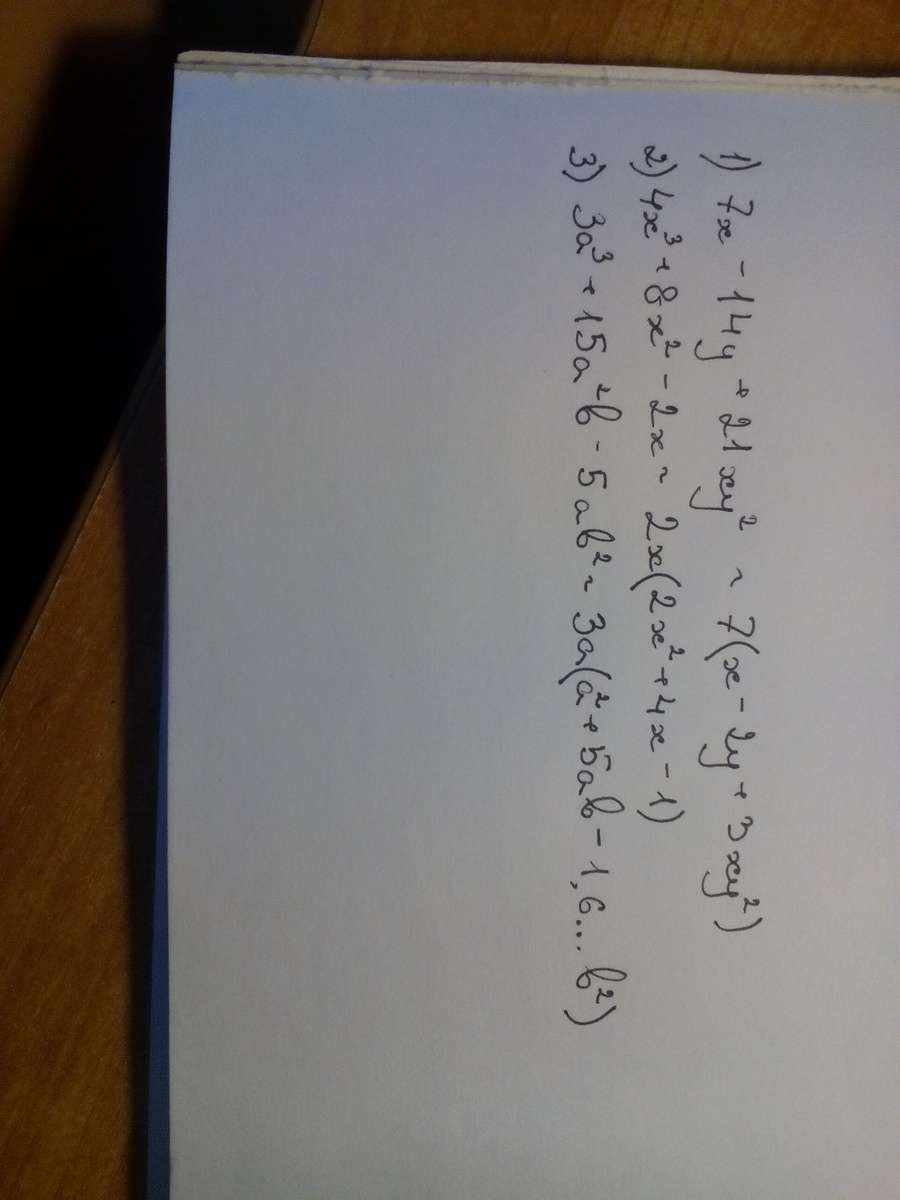 1) 7x - 14y + 21xy² = 7(x - 2y + 3xy²)
2) 4x³ + 8x² - 2x = 2x(2x² + 4x - 1)
3) 3a³ + 15a²b - 5ab² = 3a(a² + 5ab - 1,6... b²)